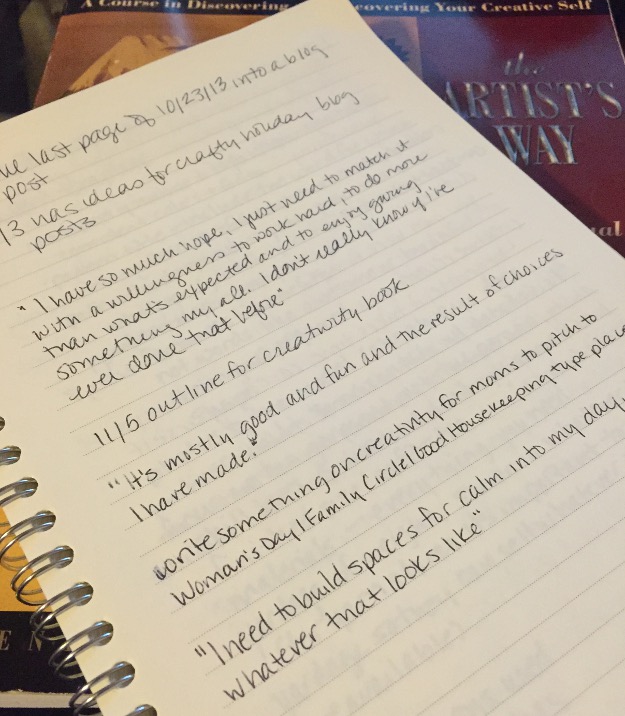 A Course in Discovering
covering Your Creative Self
the
ARTIST'S
WAY
last page of 10/23/13 into a blog
post
13 has ideas for crafty holiday blog
posts
"I have so much hope, I just need to match it
with a willingness to work hard, to do more
than what's expected and to enjoy giving
something my all. I don't really know if I've
ever done that before"
11/5 outline for creativity book
"It's mostly good and fun and the result of choices
I have made."
write something on creativity for moms to pitch to
Woman's Day / Family Circle / Good Housekeeping type place
"I need to build spaces for calm into my day,
whatever that looks like"